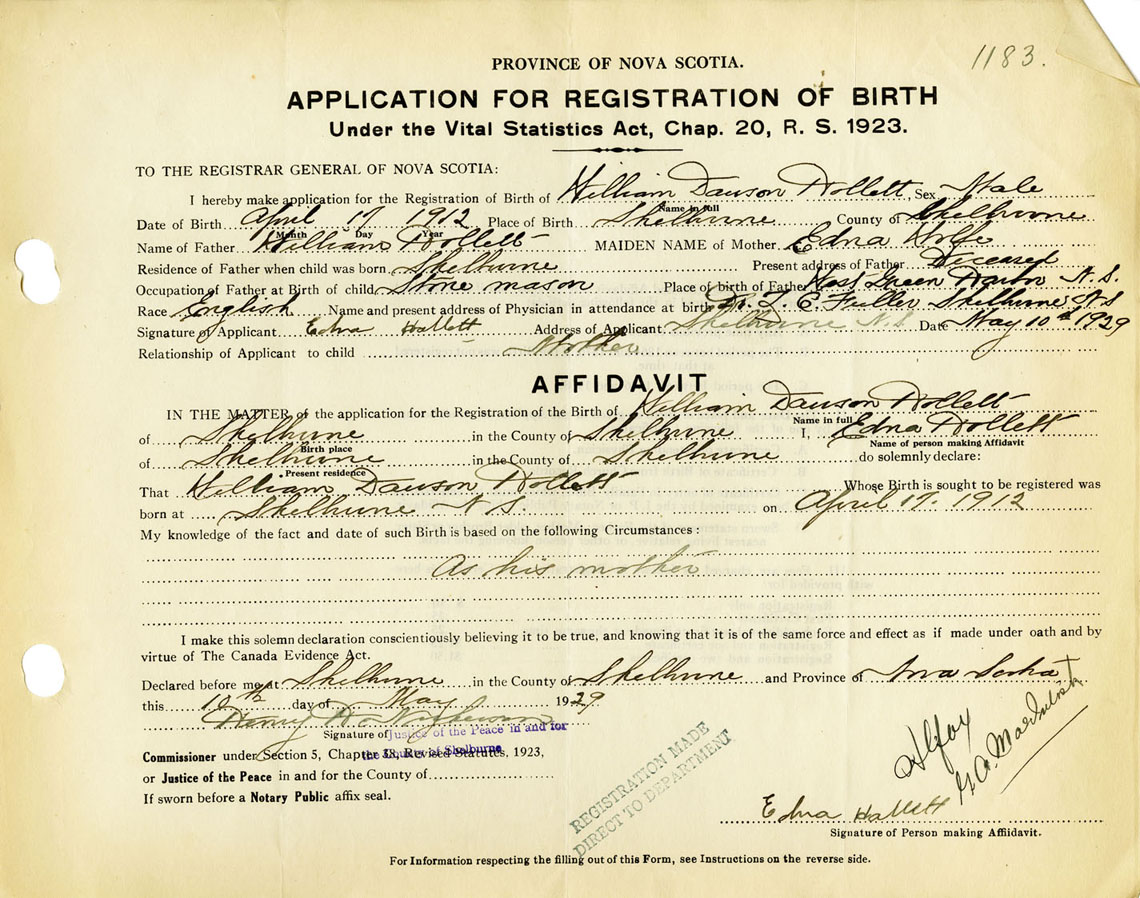 1183.
PROVINCE OF NOVA SCOTIA.
APPLICATION FOR REGISTRATION OF BIRTH
Under the Vital Statistics Act, Chap. 20, R. S. 1923.
TO THE REGISTRAR GENERAL OF NOVA SCOTIA:
I hereby make application for the Registration of Birth of William Dawson Hollett, Sex Male
Name in full
Date of Birth April 17 1912 Place of Birth Shelburne County of Shelburne
Month Day Year
Name of Father William Hollett MAIDEN NAME of Mother Edna Wolfe
Residence of Father when child was born Shelburne Present address of Father Deceased
Occupation of Father at Birth of child Stone mason Place of birth of Father West Green Harbor N. S.
Race English Name and present address of Physician in attendance at birth Dr. L. E. Fuller Shelburne N S
Signature of Applicant Edna Hallett Address of Applicant Shelburne N.S. Date May 10th 1929
Relationship of Applicant to child Mother
AFFIDAVIT
IN THE MATTER of the application for the Registration of the Birth of William Dawson Hollett
Name in full
of Shelburne in the County of Shelburne I, Edna Hollett
Birth place Name of person making Affidavit
of Shelburne in the County of Shelburne do solemnly declare:
Present residence
That William Dawson Hollett Whose Birth is sought to be registered was
born at Shelburne N S. on April 17. 1912
My knowledge of the fact and date of such Birth is based on the following Circumstances:
As his mother
I make this solemn declaration conscientiously believing it to be true, and knowing that it is of the same force and effect as if made under oath and by
virtue of The Canada Evidence Act.
Declared before me at Shelburne in the County of Shelburne and Province of Nova Scotia
this 10th day of May 1929
Henry
Signature of Justice of the Peace in and for
the County of Shelburne
Commissioner under Section 5, Chapter 38, Revised Statutes, 1923,
or Justice of the Peace in and for the County of
If sworn before a Notary Public affix seal.
REGISTRATION MADE
DIRECT TO DEPARTMENT
Halfax
G. A. MacIntosh
Edna Hallett
Signature of Person making Affiidavit.
For Information respecting the filling out of this Form, see Instructions on the reverse side.